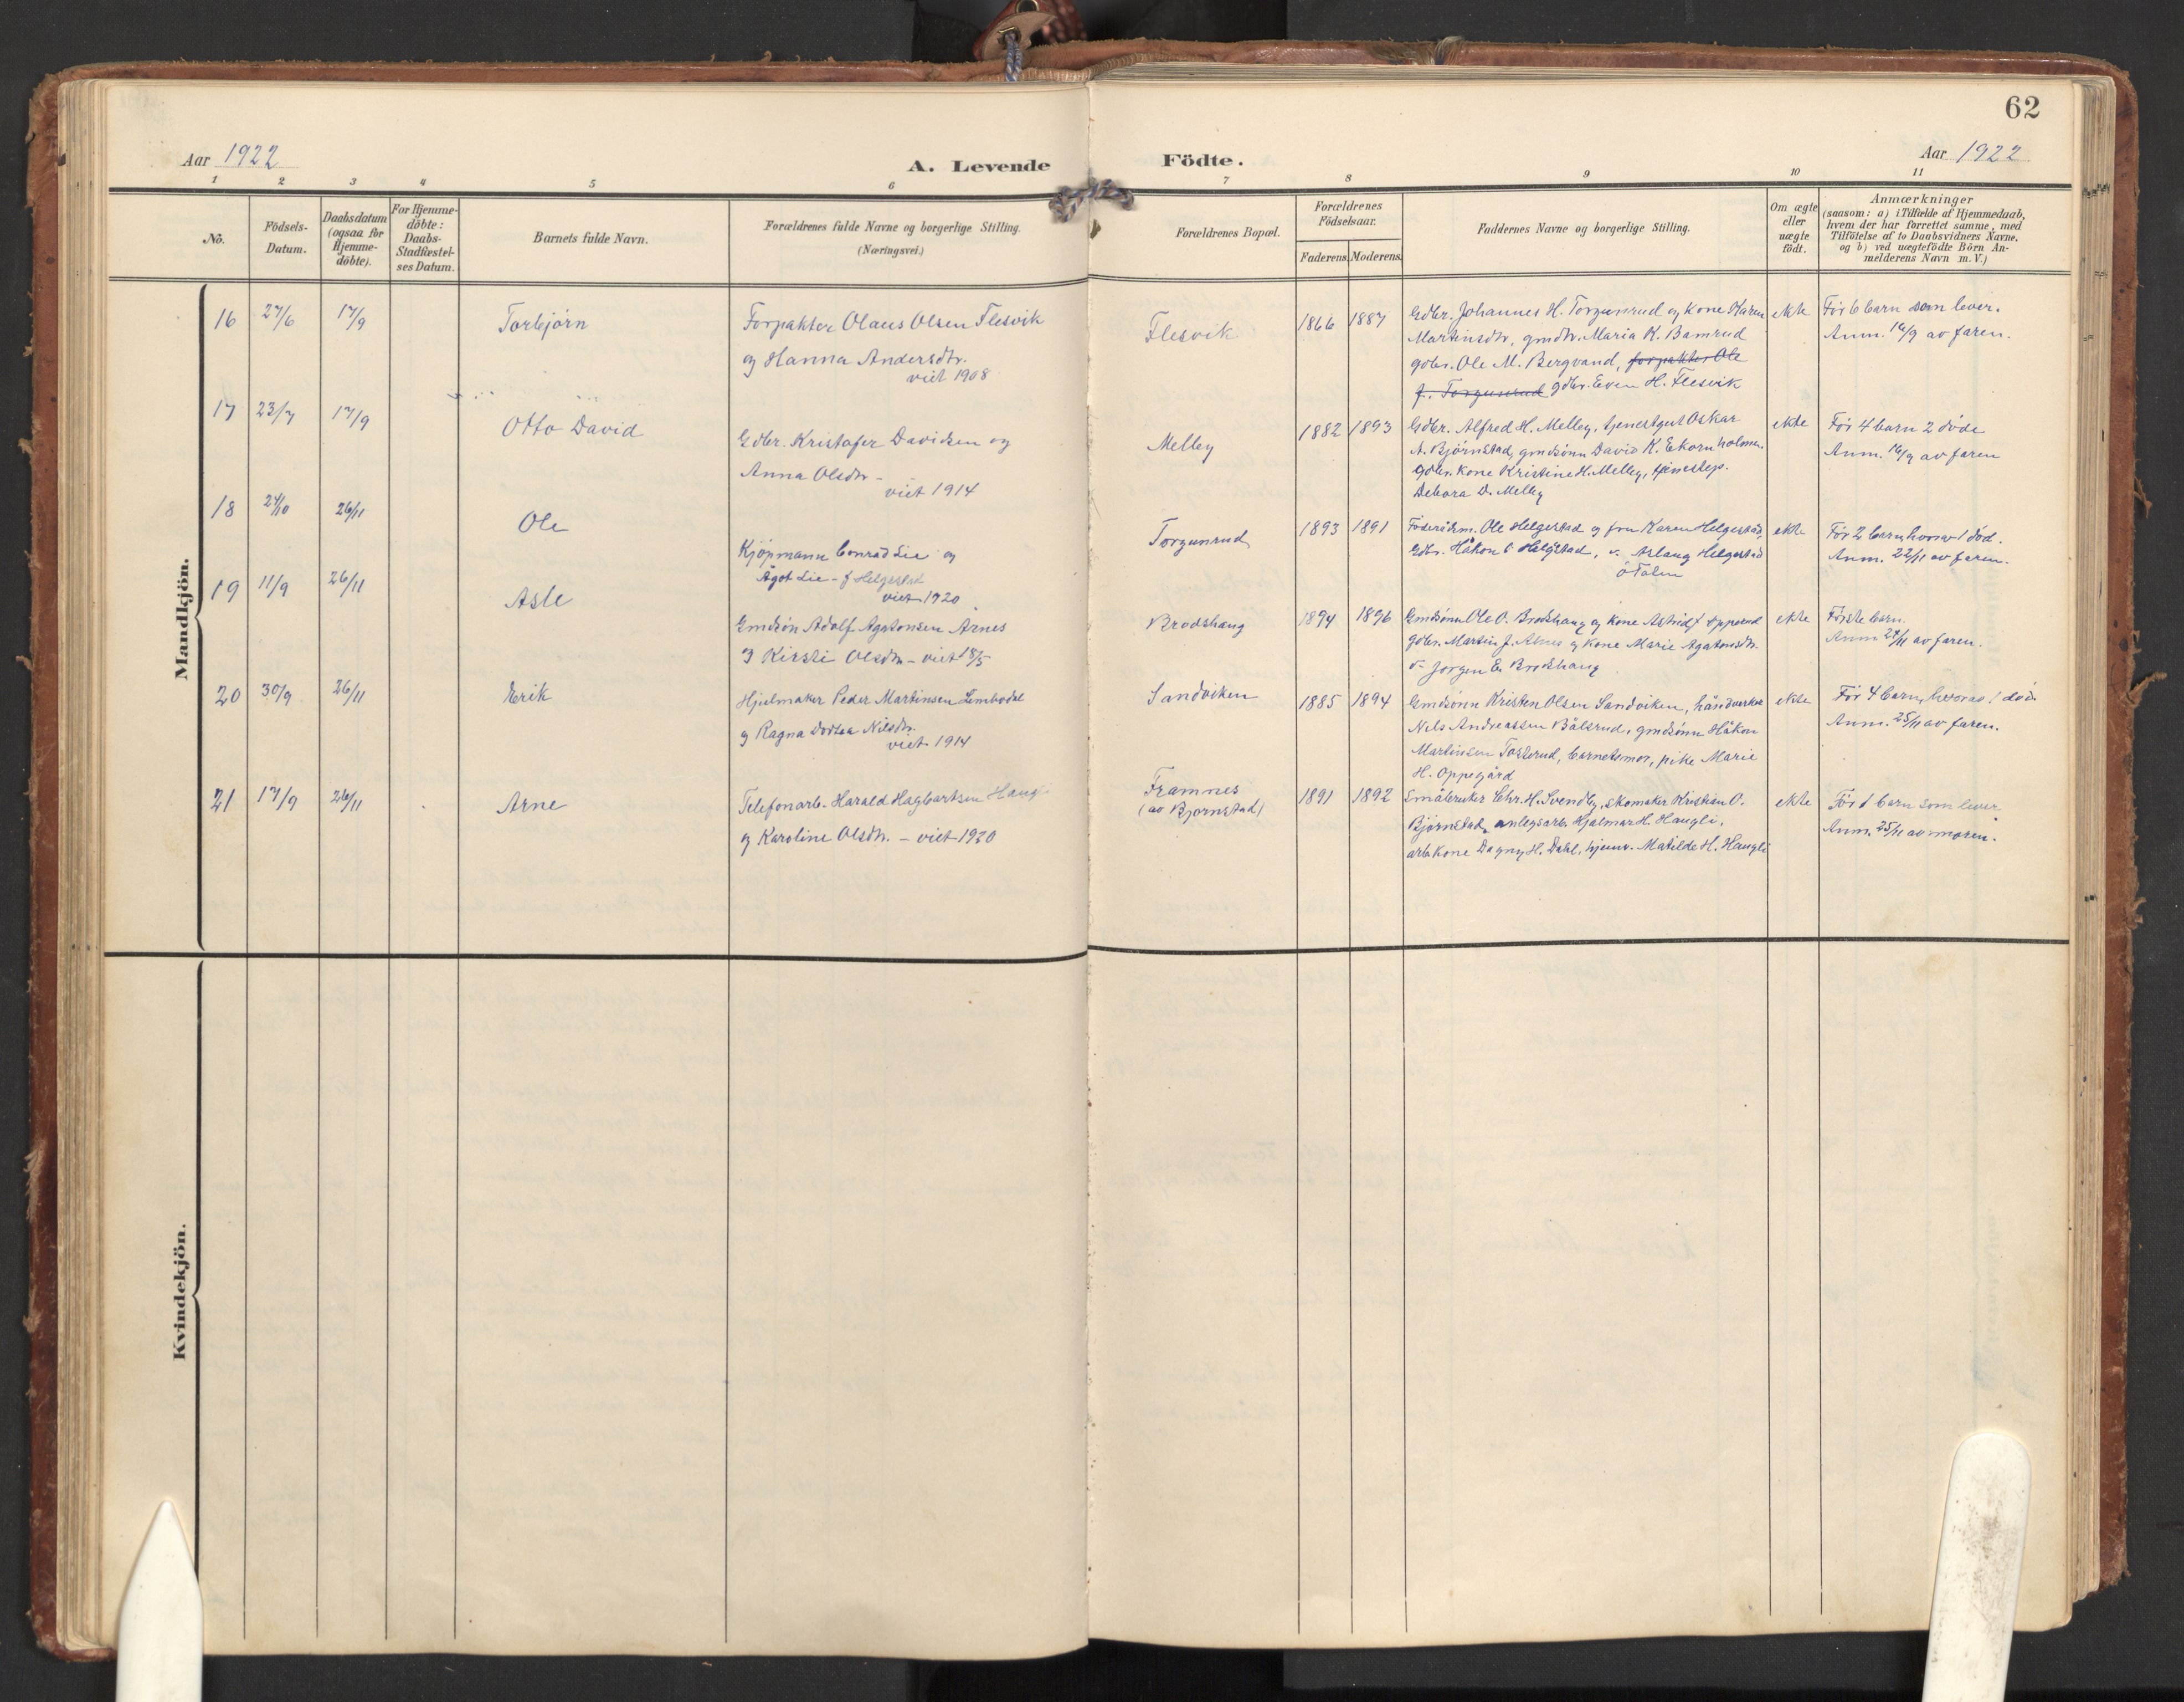 62
Aar 1922
A. Levende Födte.
Aar 1922
1 2 3 4 5 6 7 8 9 10 11
No.
Födsels-
Datum.
Daabsdatum
(ogsaa for
Hjemme-
döbte).
For Hjemme-
döbte:
Daabs-
Stadfæstel-
ses Datum.
Barnets fulde Navn.
Forældrenes fulde Navne og borgerlige Stilling.
(Næringsvei.)
Forældrenes Bopæl.
Forældrenes
Födselsaar.
Faderens. Moderens.
Faddernes Navne og borgerlige Stilling.
Om ægte
eller
uægte
födt.
Anmærkninger
(saasom: a) i Tilfælde af Hjemmedaab,
hvem der har forrettet samme, med
Tilföielse af to Daabsvidners Navne,
og b) ved uægtefödte Börn An-
melderens Navn m. V.)
Mandkjön.
16 27/6 17/9 Torbjørn
Forpakter Olaus Olsen Flesvik
og Hanna Andersdtr.
viet 1908
Flesvik
1866 1887
Gdbr. Johannes H. Torgunrud og kone Karen
Martinsdtr, gmdtr. Maria K. Bamrud
gdbr. Ole M. Bergvand, forpakter Ole
f. Torgunrud gdbr. Even H. Flesvik
ekte
Før 6 barn som lever.
Anm. 16/9 av faren.
17 23/7 17/9 Otto David
Gdbr. Kristofer Davidsen og
Anna Olsdtr -
viet 1914
Melleby
1882 1893
Gdbr. Alfred H. Melleby, tjenestgut Oskar
A. Bjørnstad, gmdsønn David K. Ekornholmen
gdbr. kone Kristine H. Melleby, tjenestep.
Debora D. Melleby
ekte
Før 4 barn 2 døde
Anm. 16/9 av faren
18 24/10 26/11 Ole
Kjøpmann Conrad Lie og
Ågot Lie - f Helgestad
viet 1920
Torgunrud
1893 1891
Føderådsm. Ole Helgestad og fru Karen Helgestad,
Gdbr. Håkon Helgestad, Aslaug Helgestad
ekte
Før 2 barn hvorav 1 død.
Anm. 22/11 av faren.
19 11/9 26/11 Asle
Gmdsøn Adolf Agatonsen Årnes
og Kirsti Olsdtr - viet 18/5
Brodshaug
1894 1896
Gmdsønn Ole O. Brodshaug og kone Astrid
gdbr. Martin J. Årnes og kone Marie Agatonsdtr.
Jørgen E. Brodshaug
ekte
Første barn.
Anm 24/11 av faren.
20 30/9 26/11 Erik
Hjulmaker Peder Martinsen Limbodal
og Ragna Dortea Nilsdtr.
viet 1914
Sandviken
1885 1894
Gmdsønn Kristen Olsen Sandviken, håndverker
Nils Andreassen Bålsrud, gmdsønn Håkon
Martinsen Tosterud, barnetsmor, pike Marie
H. Oppegård
ekte
Før 4 barn, hvorav 1 død.
Anm. 25/11 av faren.
21 17/9 26/11 Arne
Telefonarb. Harald Hagbartsen Haug
og Karoline Olsdtr. - viet 1920
Framnes
(av Bjørnstad)
1891 1892
Småbruker Chr. H. Svendby, skomaker Kristian O.
Bjørnstad, anlegsarb. Hjalmar H. Haugli,
arb. kone Dagny H. Dahl, hjemv. Matilde H. Haugli
ekte
Før 1 barn som lever
Anm. 25/11 av moren.
Kvindekjön.